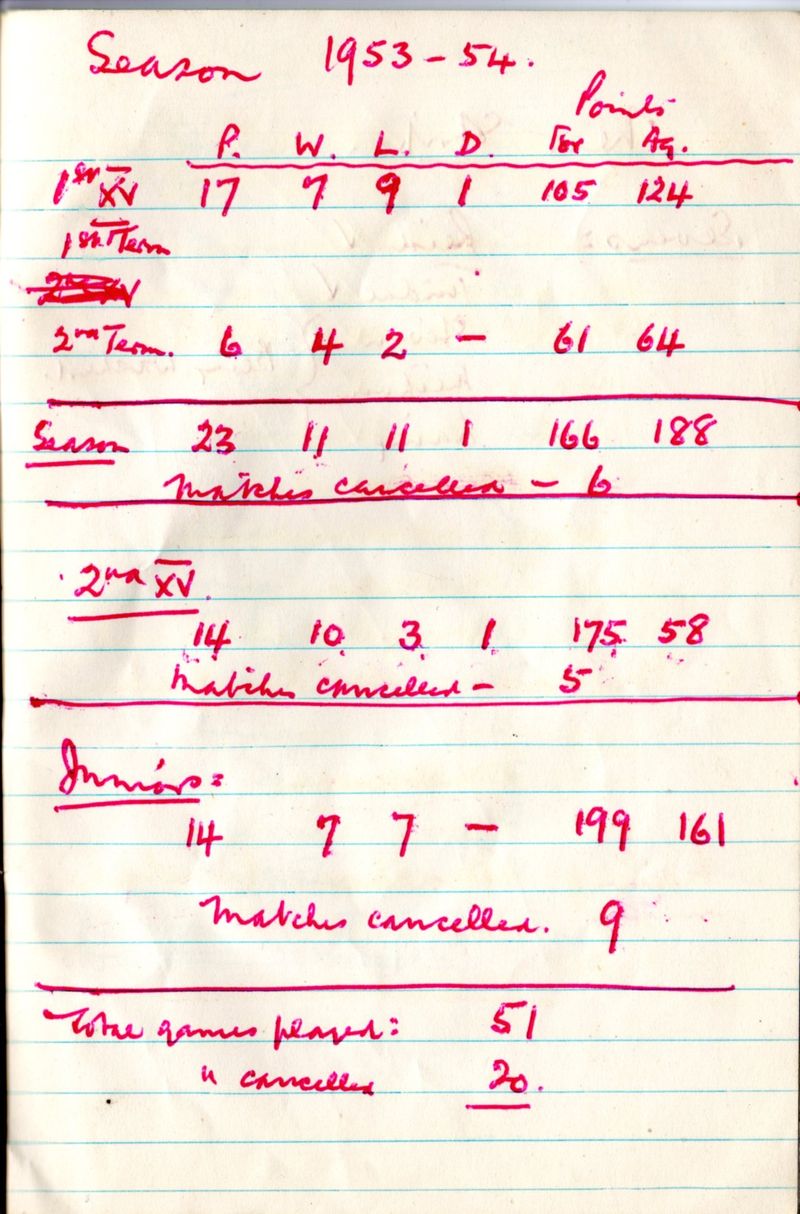 Season 1953-54.
Points
P. W. L. D. For Ag.
1st XV 17 7 9 1 105 124
1st Term
2nd Term. 6 4 2 - 61 64
Season 23 11 11 1 166 188
Matches cancelled - 6
2nd XV.
14 10 3 1 175 58
Matches cancelled - 5
Juniors:
14 7 7 - 199 161
Matches cancelled. 9
Total games played: 51
" cancelled 20.